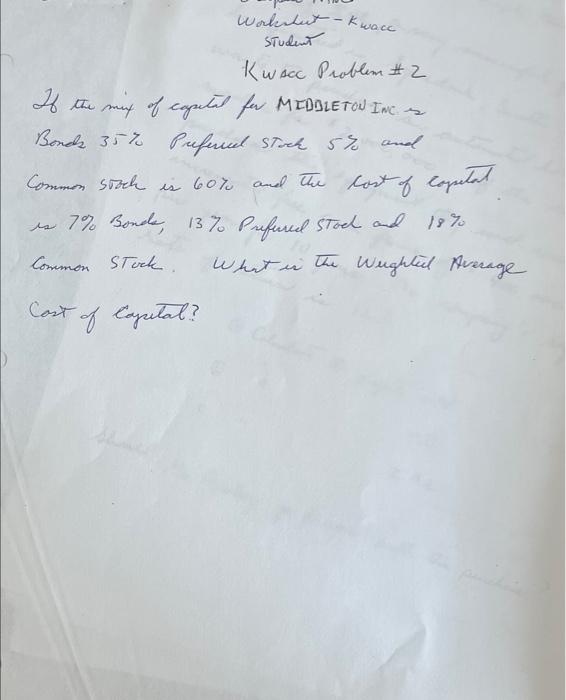 Worksheet - Kwacc
Student
Kwacc Problem # 2
If the mix of capital for MIDDLETON INC. is
Bonds 35% Preferred Stock 5% and
Common stock is 60% and the cost of capital
is 7% Bonds, 13% Preferred Stock and 18%
Common Stock. What is the Weighted Average
Cost of Capital?